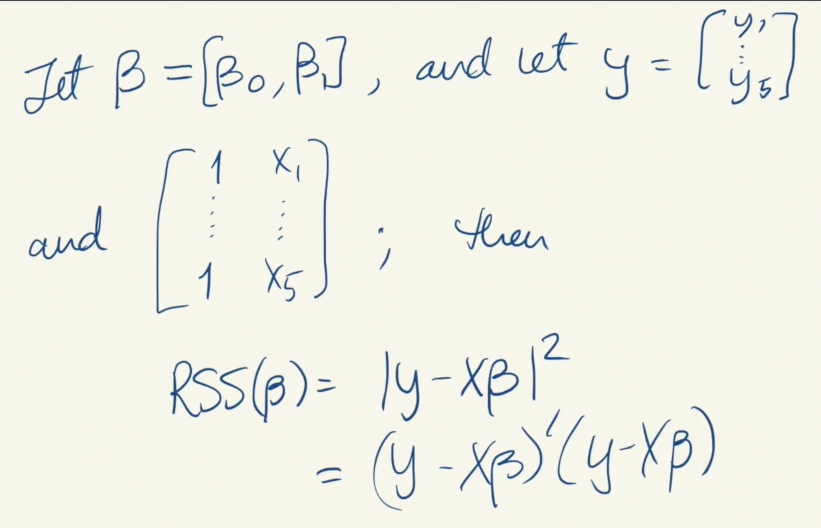 Let β = [β₀, β₁], and let y = [y₁ ⋮ y₅]
and [1 x₁ ⋮ ⋮ 1 x₅] ; then
RSS(β) = |y - Xβ|²
= (y - Xβ)'(y - Xβ)